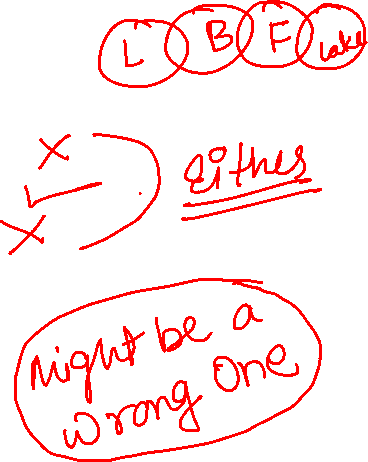 L B F Lake
Either
Might be a
wrong one